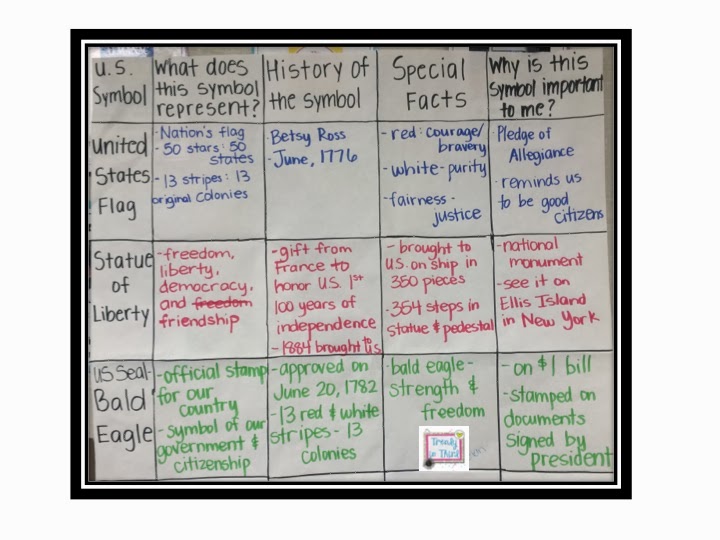 U.S.
Symbol
What does
this symbol
represent?
History of
the symbol
Special
Facts
Why is this
Symbol important
to me?
United
States
Flag
-Nation's flag
- 50 stars: 50
states
- 13 stripes: 13
original colonies
Betsy Ross
- June, 1776
- red: courage/
bravery
- white - purity
- fairness -
justice
- Pledge of
Allegiance
- reminds us
to be good
citizens
Statue
of
Liberty
- freedom,
liberty,
democracy,
and freedom
friendship
- gift from
France to
honor U.S. 1st
100 years of
independence
- 1884 brought to
- brought to
U.S. on ship in
350 pieces
- 354 steps in
statue & pedestal
- national
monument
- see it on
Ellis Island
in New York
US Seal-
Bald
Eagle
- official stamp
for our
country
- symbol of our
government &
citizenship
- approved on
June 20, 1782
- 13 red & white
stripes - 13
colonies
- bald eagle -
strength &
freedom
Trendy
in Third
- on $1 bill
- stamped on
documents
signed by
president